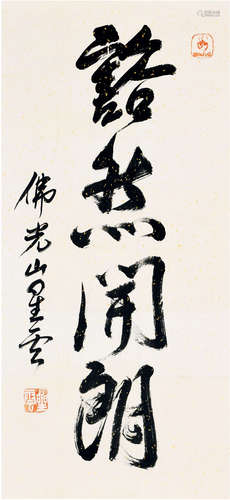 豁然開朗
佛光山星雲